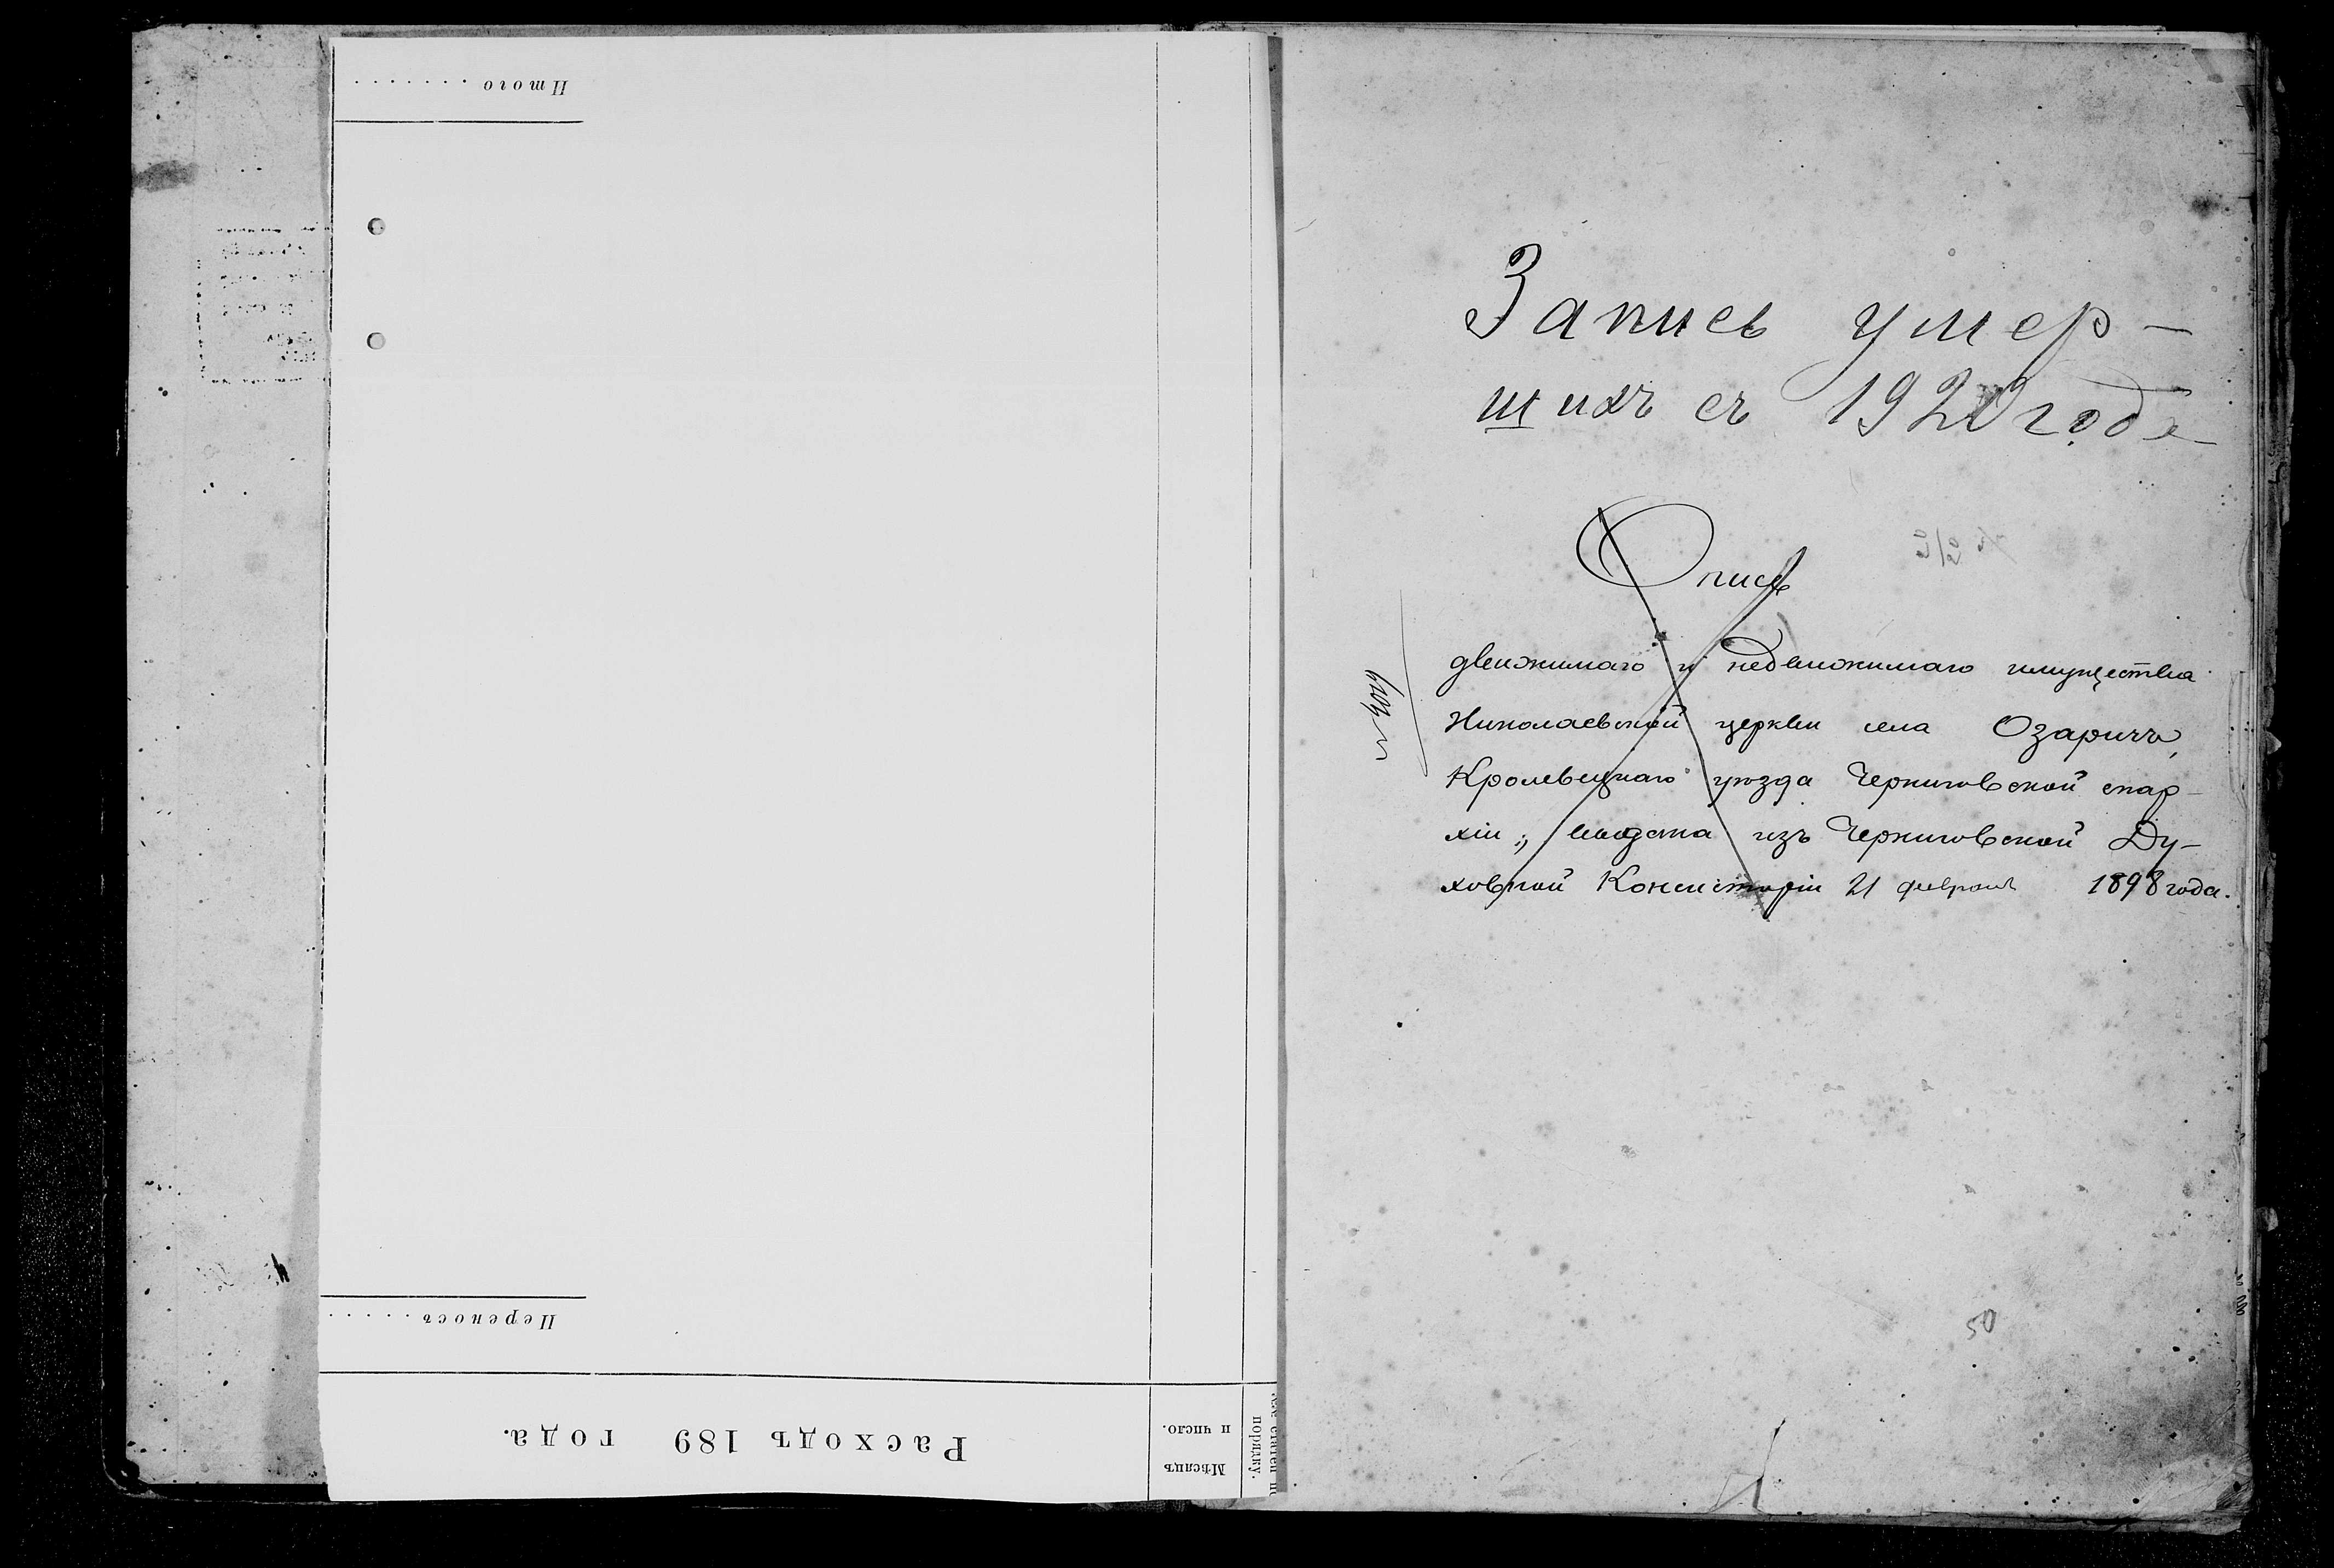 Итого . . . . . . .
Переносъ . . . . .
Расходъ 189 года.
Мѣсяцъ
и число.
порядку.
Запись умер-
шихъ съ 1920 года
Опись
движимаго и недвижимаго имущества
Николаевской церкви села Озаричъ,
Кролевецкаго уѣзда Черниговской епар-
хіи, выдана изъ Черниговской Ду-
ховной Консисторіи 21 февраля 1898 года.
50